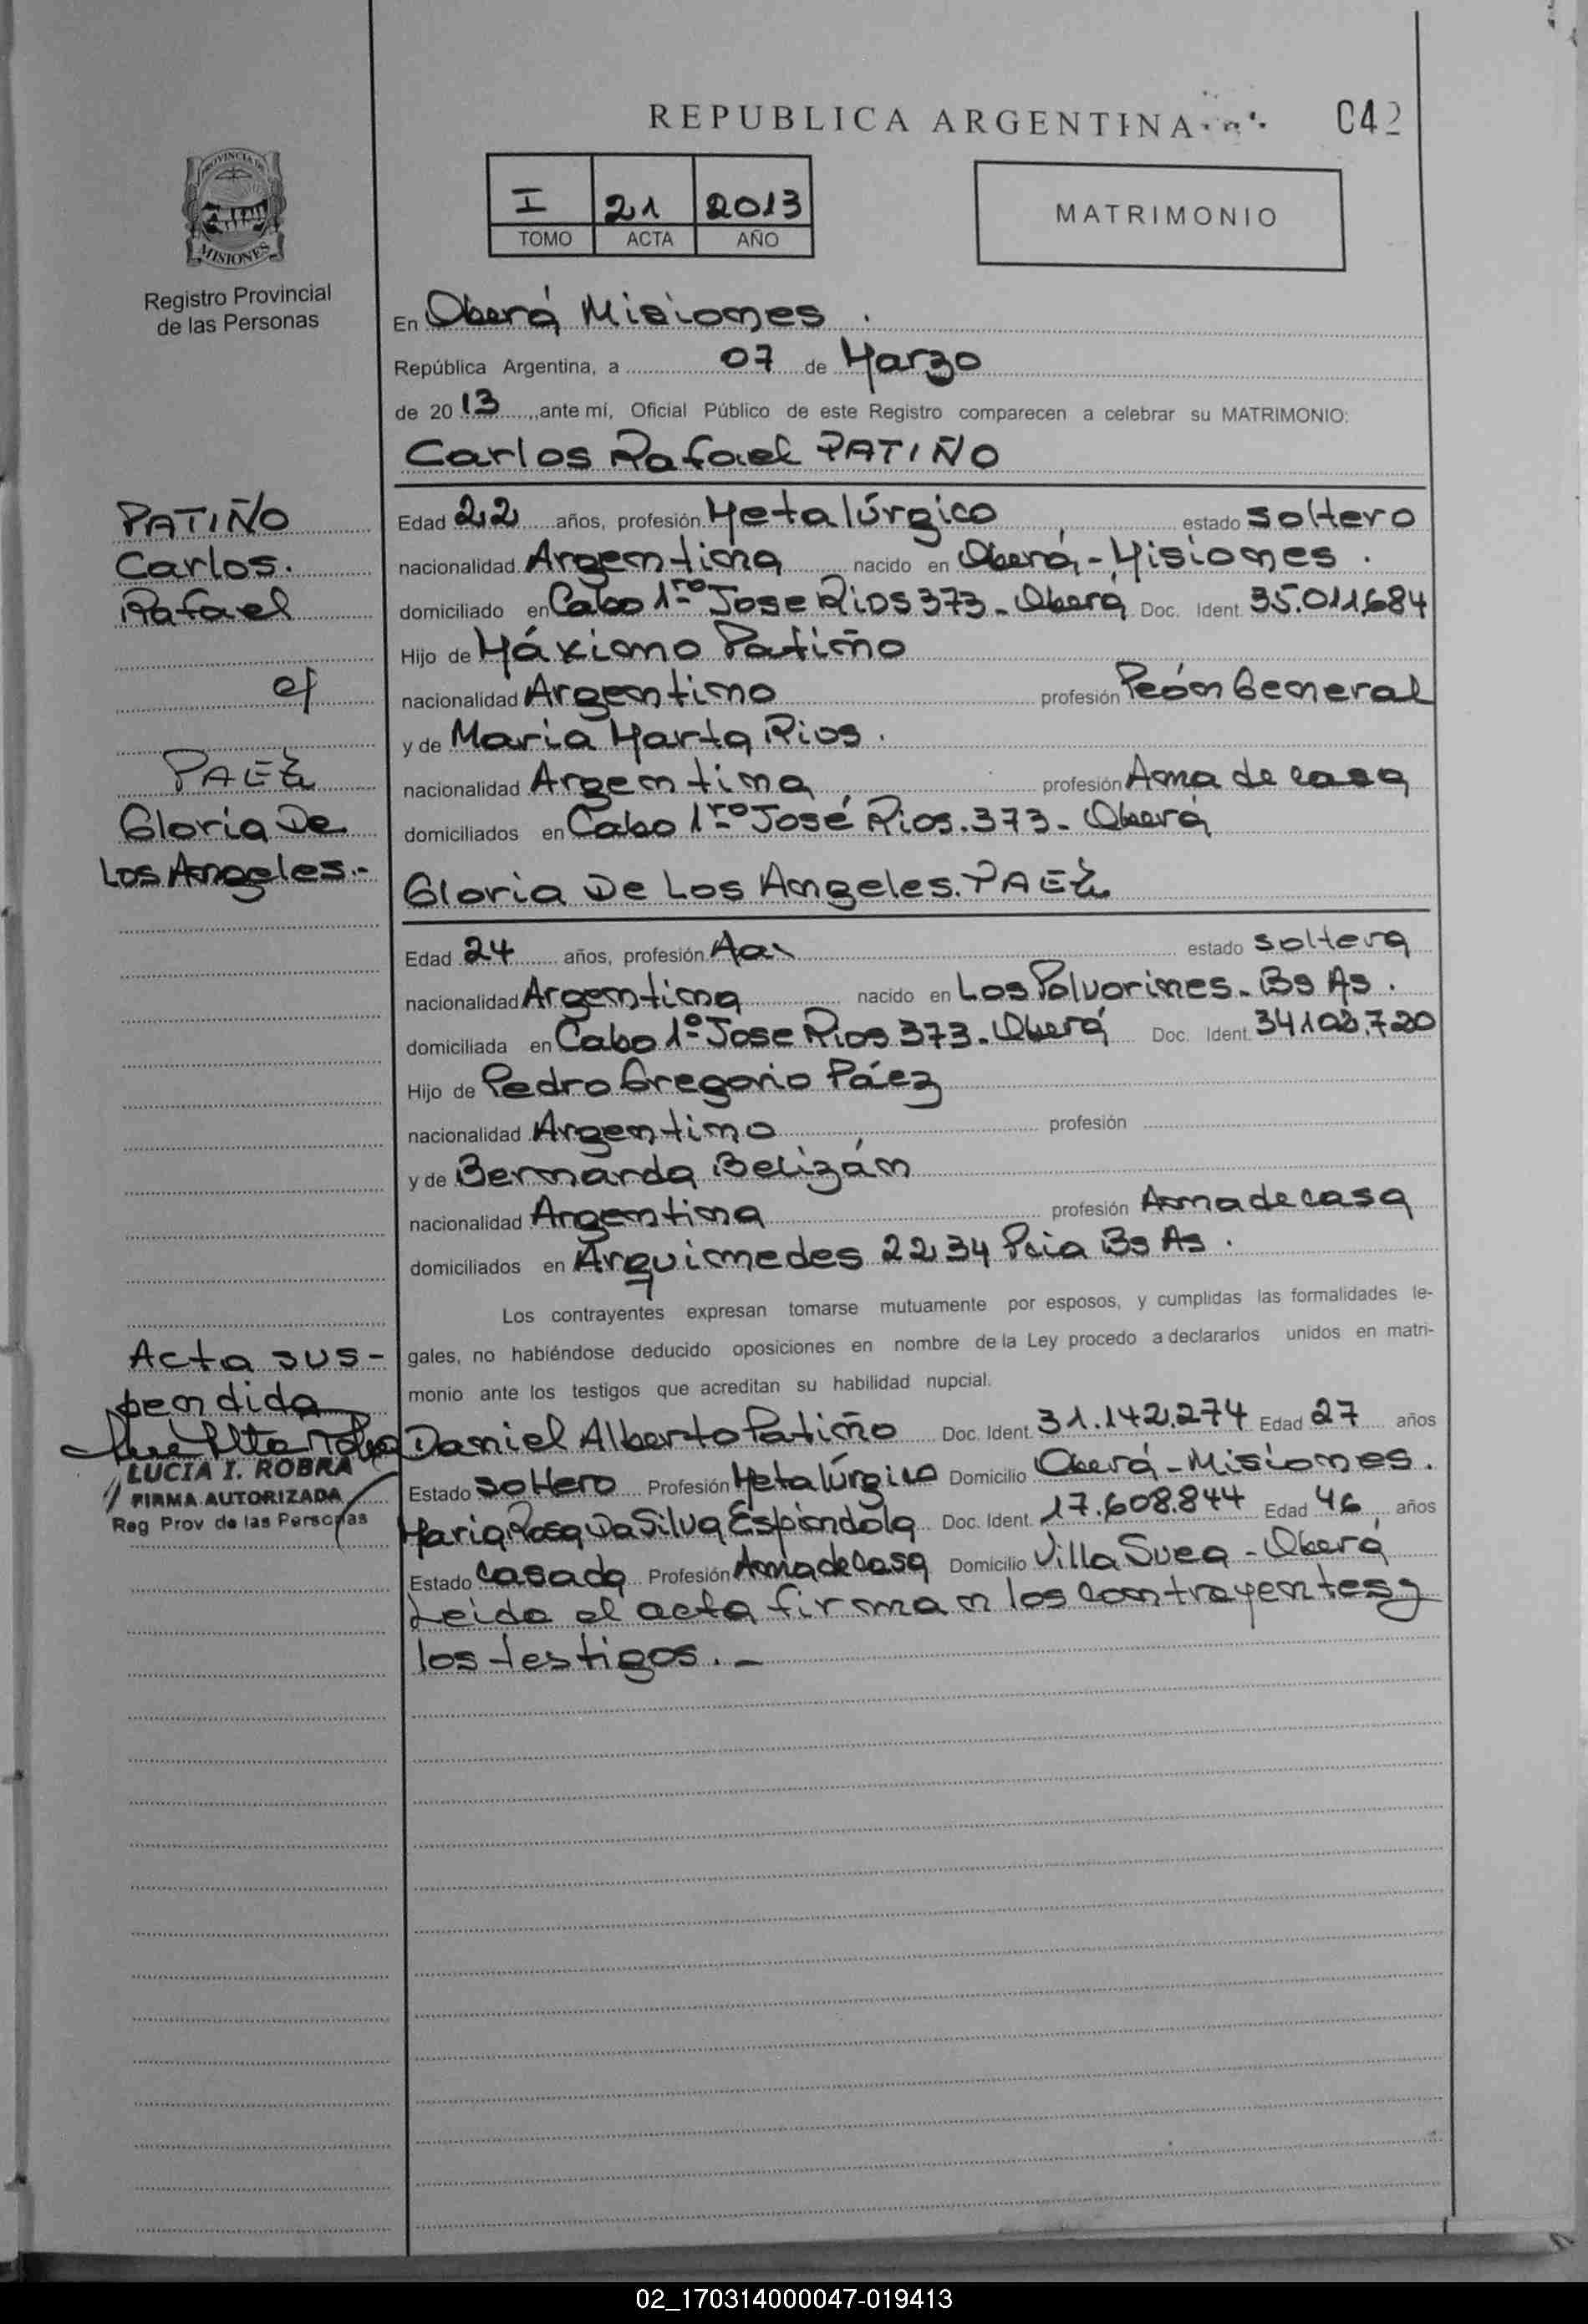 REPUBLICA ARGENTINA
042
I 21 2013
TOMO ACTA AÑO
MATRIMONIO
PROVINCIA DE
MISIONES
Registro Provincial
de las Personas
En Oberá Misiones.
República Argentina, a 07 de Marzo
de 2013, ante mí, Oficial Público de este Registro comparecen a celebrar su MATRIMONIO:
Carlos Rafael PATIÑO
PATIÑO
Carlos.
Rafael
c/
PAEZ
Gloria De
Los Angeles.-
Edad 22 años, profesión Metalúrgico estado soltero
nacionalidad Argentina nacido en Oberá - Misiones.
domiciliado en Cabo 1ro Jose Rios 373 - Oberá Doc. Ident. 35.011.684
Hijo de Máximo Patiño
nacionalidad Argentino profesión Peón General
y de Maria Marta Rios.
nacionalidad Argentina profesión Ama de casa
domiciliados en Cabo 1ro José Rios. 373 - Oberá
Gloria De Los Angeles. PAEZ
Edad 24 años, profesión estado soltera
nacionalidad Argentina nacido en Los Polvorines - Bs As.
domiciliada en Cabo 1º Jose Rios 373 - Oberá Doc. Ident. 34.103.720
Hijo de Pedro Gregorio Páez
nacionalidad Argentino profesión
y de Bernarda Belizán
nacionalidad Argentina profesión Ama de casa
domiciliados en Arquimedes 2234 Pcia Bs As.
Los contrayentes expresan tomarse mutuamente por esposos, y cumplidas las formalidades le-
gales, no habiéndose deducido oposiciones en nombre de la Ley procedo a declararlos unidos en matri-
monio ante los testigos que acreditan su habilidad nupcial.
Daniel Alberto Patiño Doc. Ident. 31.142.274 Edad 27 años
Estado soltero Profesión Metalúrgico Domicilio Oberá - Misiones.
Maria Rosa Da Silva Espíndola Doc. Ident. 17.608.844 Edad 46 años
Estado casada Profesión Ama de casa Domicilio Villa Svea - Oberá
Leída el acta firman los contrayentes y
los testigos. -
Acta sus-
pendida
LUCIA I. ROBRA
FIRMA AUTORIZADA
Reg Prov de las Personas
02_170314000047-019413